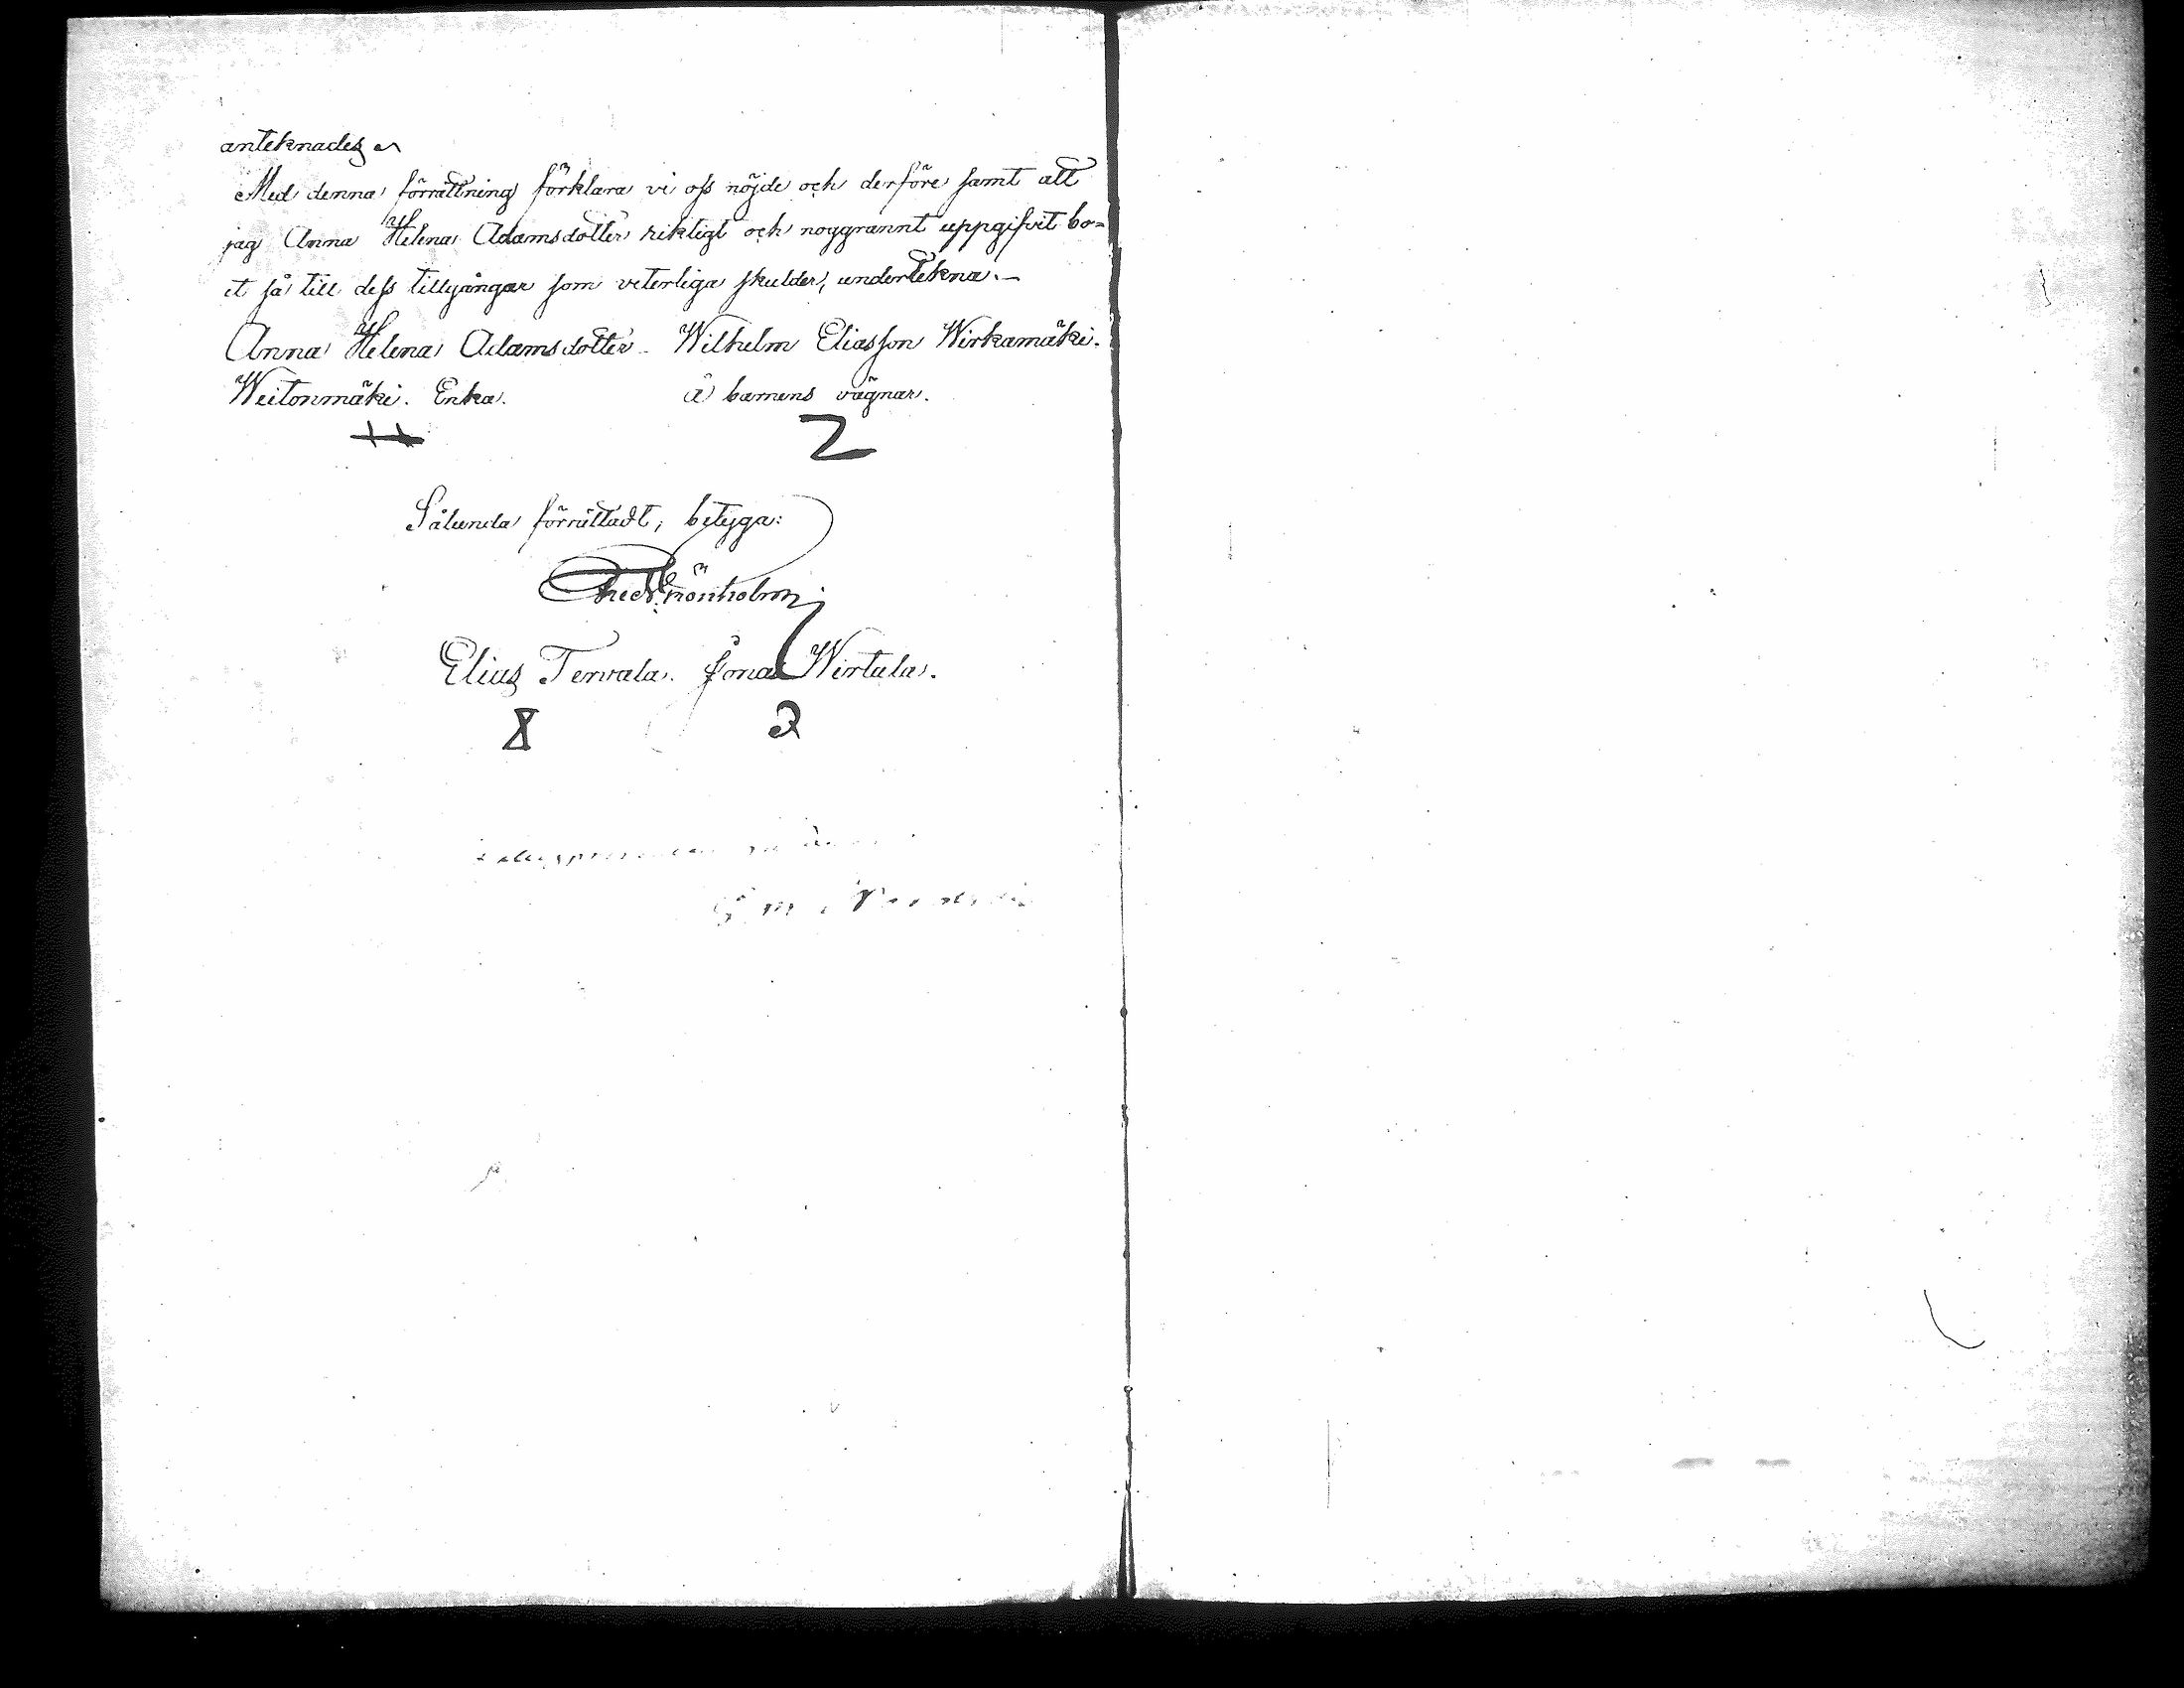 anteknades
Med denna förrättning förklara vi oss nöjde och derföre samt att
jag Anna Helena Adamsdotter riktigt och noggrannt uppgifvit bo=
et så till dess tillgångar som veterliga skulder, undertekna.—
Anna Helena Adamsdotter Wilhelm Eliasson Wirkamäki.
Weitonmäki. Enka. å barnens vägnar.
Sålunda förrättadt, betyga:
Elias Tervala. Jonas Wirtala.